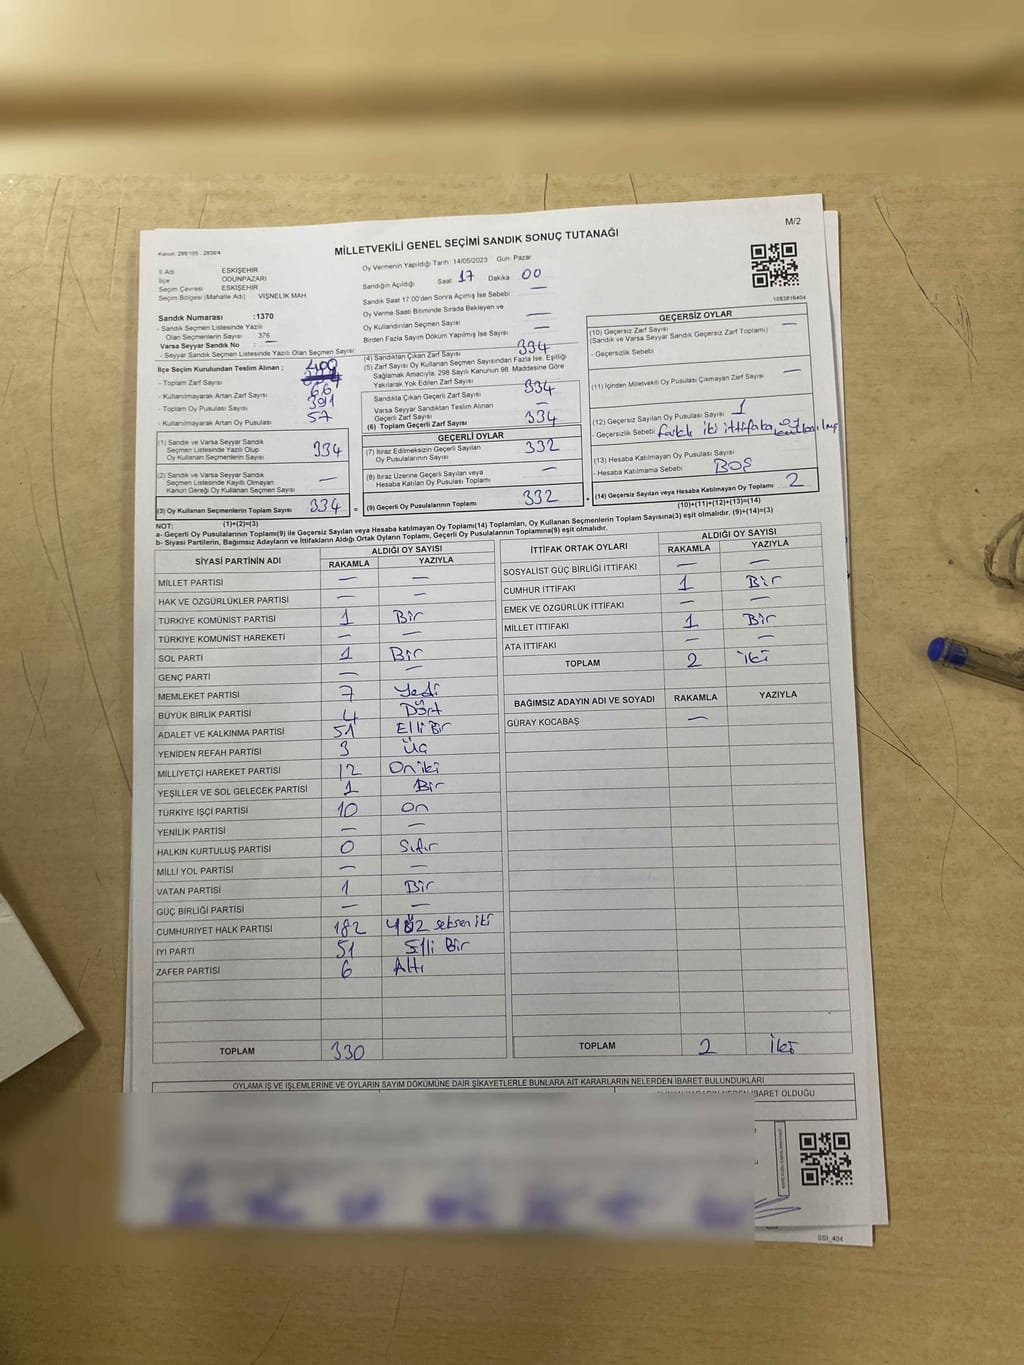 M/2
Kanun: 298/105 - 2839/4
MİLLETVEKİLİ GENEL SEÇİMİ SANDIK SONUÇ TUTANAĞI
İl Adı ESKİŞEHİR
İlçe ODUNPAZARI
Seçim Çevresi ESKİŞEHİR
Seçim Bölgesi (Mahalle Adı) VİŞNELİK MAH
Oy Vermenin Yapıldığı Tarih 14/05/2023 Gün Pazar
Sandığın Açıldığı Saat 17 Dakika 00
Sandık Saat 17:00'den Sonra Açımış İse Sebebi —
Oy Verme Saati Bitiminde Sırada Bekleyen ve
Oy Kullandırılan Seçmen Sayısı —
Birden Fazla Sayım Döküm Yapılmış İse Sayısı —
1083816404
Sandık Numarası :1370
- Sandık Seçmen Listesinde Yazılı
Olan Seçmenlerin Sayısı 376
Varsa Seyyar Sandık No : —
- Seyyar Sandık Seçmen Listesinde Yazılı Olan Seçmen Sayısı
İlçe Seçim Kurulundan Teslim Alınan ; 400
- Toplam Zarf Sayısı
- Kullanılmayarak Artan Zarf Sayısı 66
- Toplam Oy Pusulası Sayısı 391
- Kullanılmayarak Artan Oy Pusulası 57
(1) Sandık ve Varsa Seyyar Sandık
Seçmen Listesinde Yazılı Olup
Oy Kullanan Seçmenlerin Sayısı 334
(2) Sandık ve Varsa Seyyar Sandık
Seçmen Listesinde Kayıtlı Olmayan
Kanun Gereği Oy Kullanan Seçmen Sayısı —
(3) Oy Kullanan Seçmenlerin Toplam Sayısı 334 =
(1)+(2)=(3)
(4) Sandıktan Çıkan Zarf Sayısı 334
(5) Zarf Sayısı Oy Kullanan Seçmen Sayısından Fazla İse, Eşitliği
Sağlamak Amacıyla, 298 Sayılı Kanunun 98. Maddesine Göre
Yakılarak Yok Edilen Zarf Sayısı
Sandıkta Çıkan Geçerli Zarf Sayısı 334
Varsa Seyyar Sandıktan Teslim Alınan
Geçerli Zarf Sayısı —
(6) Toplam Geçerli Zarf Sayısı 334
GEÇERLİ OYLAR
(7) İtiraz Edilmeksizin Geçerli Sayılan
Oy Pusulalarının Sayısı 332
(8) İtiraz Üzerine Geçerli Sayılan veya
Hesaba Katılan Oy Pusulası Toplamı —
(9) Geçerli Oy Pusulalarının Toplamı 332 +
GEÇERSİZ OYLAR
(10) Geçersiz Zarf Sayısı —
(Sandık ve Varsa Seyyar Sandık Geçersiz Zarf Toplamı)
- Geçersizlik Sebebi
(11) İçinden Milletvekili Oy Pusulası Çıkmayan Zarf Sayısı —
(12) Geçersiz Sayılan Oy Pusulası Sayısı 1
- Geçersizlik Sebebi farklı iki ittifaka oy
(13) Hesaba Katılmayan Oy Pusulası Sayısı
- Hesaba Katılmama Sebebi BOŞ
(14) Geçersiz Sayılan veya Hesaba Katılmayan Oy Toplamı 2
(10)+(11)+(12)+(13)=(14)
NOT:
a- Geçerli Oy Pusulalarının Toplamı(9) ile Geçersiz Sayılan veya Hesaba katılmayan Oy Toplamı(14) Toplamları, Oy Kullanan Seçmenlerin Toplam Sayısına(3) eşit olmalıdır. (9)+(14)=(3)
b- Siyasi Partilerin, Bağımsız Adayların ve İttifakların Aldığı Ortak Oyların Toplamı, Geçerli Oy Pusulalarının Toplamına(9) eşit olmalıdır.
SİYASİ PARTİNİN ADI ALDIĞI OY SAYISI
RAKAMLA YAZIYLA
MİLLET PARTİSİ — —
HAK VE ÖZGÜRLÜKLER PARTİSİ — —
TÜRKİYE KOMÜNİST PARTİSİ 1 Bir
TÜRKİYE KOMÜNİST HAREKETİ — —
SOL PARTİ 1 Bir
GENÇ PARTİ — —
MEMLEKET PARTİSİ 7 Yedi
BÜYÜK BİRLİK PARTİSİ 4 Dört
ADALET VE KALKINMA PARTİSİ 51 Elli Bir
YENİDEN REFAH PARTİSİ 3 Üç
MİLLİYETÇİ HAREKET PARTİSİ 12 Oniki
YEŞİLLER VE SOL GELECEK PARTİSİ 1 Bir
TÜRKİYE İŞÇİ PARTİSİ 10 On
YENİLİK PARTİSİ — —
HALKIN KURTULUŞ PARTİSİ 0 Sıfır
MİLLİ YOL PARTİSİ — —
VATAN PARTİSİ 1 Bir
GÜÇ BİRLİĞİ PARTİSİ — —
CUMHURİYET HALK PARTİSİ 182 Yüz seksen iki
İYİ PARTİ 51 Elli Bir
ZAFER PARTİSİ 6 Altı
TOPLAM 330
İTTİFAK ORTAK OYLARI ALDIĞI OY SAYISI
RAKAMLA YAZIYLA
SOSYALİST GÜÇ BİRLİĞİ İTTİFAKI — —
CUMHUR İTTİFAKI 1 Bir
EMEK VE ÖZGÜRLÜK İTTİFAKI — —
MİLLET İTTİFAKI 1 Bir
ATA İTTİFAKI — —
TOPLAM 2 iki
BAĞIMSIZ ADAYIN ADI VE SOYADI RAKAMLA YAZIYLA
GÜRAY KOCABAŞ —
TOPLAM 2 İki
OYLAMA İŞ VE İŞLEMLERİNE VE OYLARIN SAYIM DÖKÜMÜNE DAİR ŞİKAYETLERLE BUNLARA AİT KARARLARIN NELERDEN İBARET BULUNDUKLARI
İBARET OLDUĞU
SSI_404